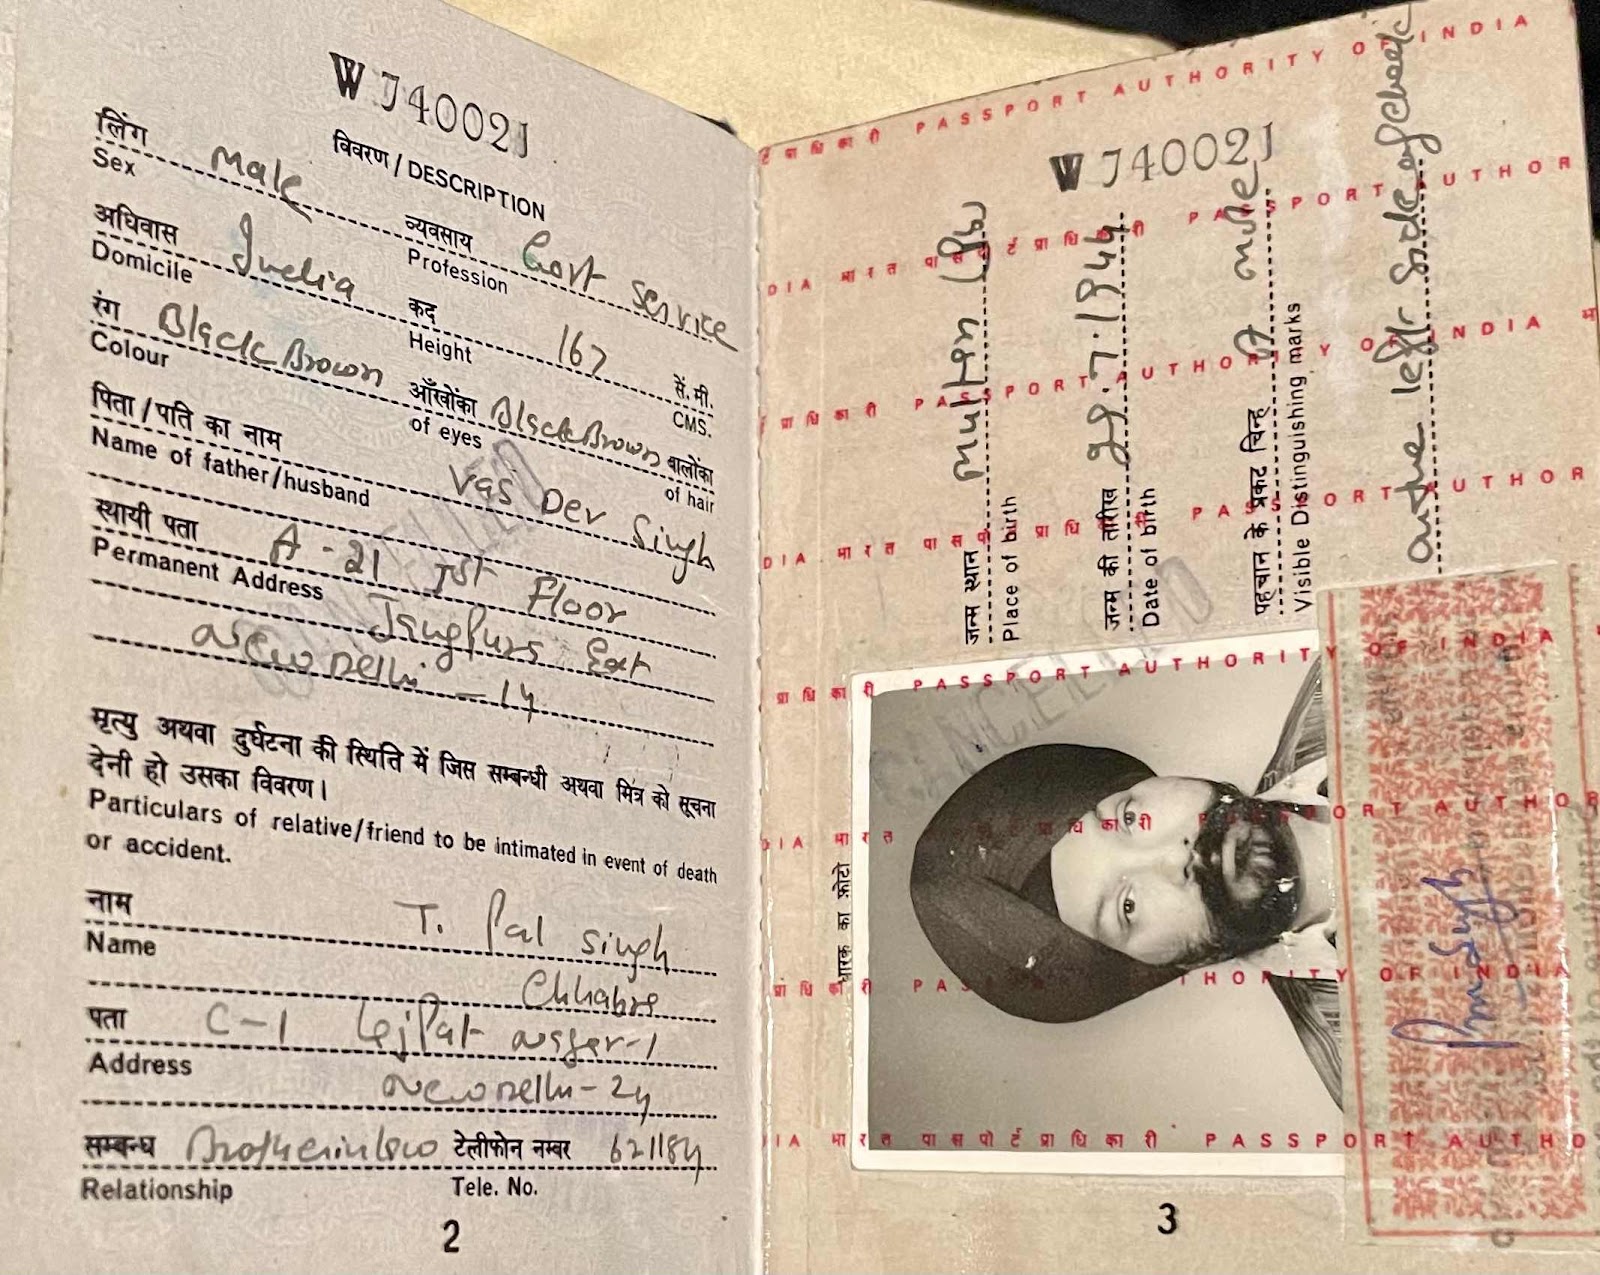 W J40021
विवरण / DESCRIPTION
लिंग Male व्यवसाय Govt Service
Sex Profession
अधिवास India कद 167 सें. मी.
Domicile Height CMS.
रंग Black Brown आँखोंका Black Brown बालोंका
Colour of eyes of hair
पिता / पति का नाम Vas Dev Singh
Name of father/husband
स्थायी पता A-21 Ist Floor
Permanent Address Jangpura Ext
New Delhi - 14
CANCELLED
मृत्यु अथवा दुर्घटना की स्थिति में जिस सम्बन्धी अथवा मित्र को सूचना
देनी हो उसका विवरण।
Particulars of relative/friend to be intimated in event of death
or accident.
नाम T. Pal Singh
Name Chhabra
पता C-1 Lajpat Nagar-1
Address New Delhi - 24
सम्बन्ध Brotherinlaw टेलीफोन नम्बर 621184
Relationship Tele. No.
2
W J40021
जन्म स्थान Multan (Pak)
Place of birth
जन्म की तारीख 29.7.1944
Date of birth
पहचान के प्रकट चिन्ह A mole
Visible Distinguishing marks
on the left side of cheek
धारक का फ़ोटो
CANCELLED
भारत पासपोर्ट प्राधिकारी PASSPORT AUTHORITY OF INDIA
3